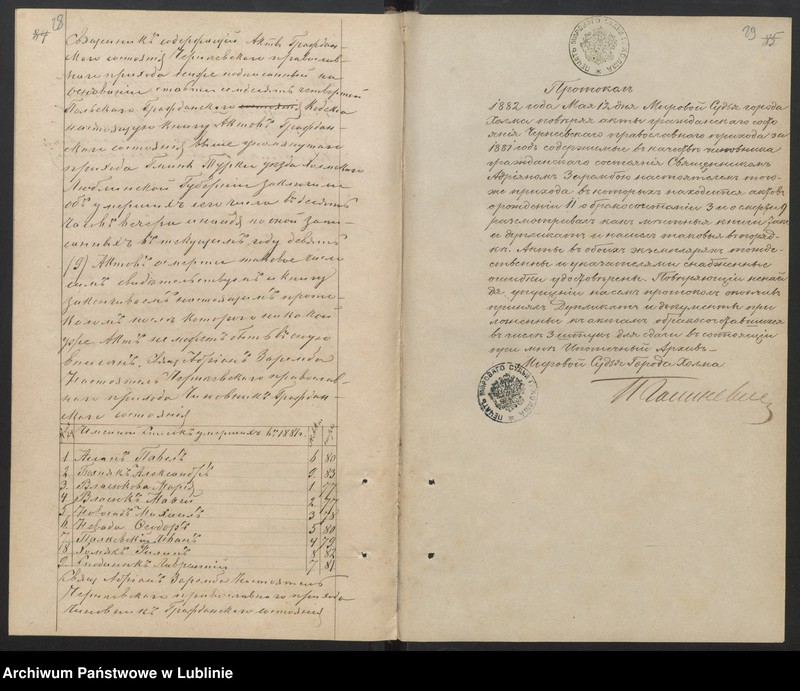 28
Священникъ содержащій Акты Граждан-
скаго состоянія Черніевскаго православ-
наго прихода ниже подписавшій на
основаніи статьи семьдесятъ четвертой
Польскаго Гражданскаго Кодекса
настоящую книгу Актовъ Граждан-
скаго состоянія выше упомянутаго
прихода Гмины Турка уѣзда Холмскаго
Люблинской Губерніи заключилъ
объ умершихъ сего числа въ десять
часовъ вечера и найдя по оной запи-
санныхъ въ текущемъ году девять
(9) Актовъ о смерти таковое число
симъ свидѣтельствуетъ и книгу
заключаетъ настоящимъ прото-
коломъ послѣ котораго никакой
уже Актъ не можетъ быть въ оную
вписанъ. Свящ. Адріанъ Заремба
Настоятель православ-
наго прихода Чиновникъ Граждан-
скаго состоянія
Именной списокъ умершихъ въ 1881 г.
1. Павелъ 6 80
2. Александръ 9 83
3. Власюкова Марія 1 77
4. Власюкъ Матѳей 2 77
5. Новосадъ Михаилъ 3 78
6. Ѳеодоръ 5 80
7. Иванъ 4 79
8. Хомякъ 8 82
9. Лаврентій 7 81
Свящ. Адріанъ Заремба Настоятель
православнаго прихода
Чиновникъ Гражданскаго состоянія
29
Протоколъ
1882 года Мая 12 дня Мировой Судья города
Холма повѣрялъ акты гражданскаго состо-
янія Черніевскаго православнаго прихода за
1881 годъ содержимые въ качествѣ чиновника
гражданскаго состоянія Священникомъ
Адріяномъ Зарембою настоятелемъ того-
же прихода въ которыхъ находится актовъ
о рожденіи 11 о бракосочетаніи 3 и о смерти 9
разсматривалъ какъ книги
и дубликатъ и нашелъ таковыя въ поряд-
кѣ. Акты въ обоихъ экземплярахъ тожде-
ственны и указателями снабженные
ошибки удостовѣрены. Повѣряющій
упущеній на семъ протоколъ окончивъ
принялъ Дупликатъ и документы при
ложенные къ актамъ бракосочетавшихся
въ числѣ 3 штукъ для сдачи въ состоящій
при мнѣ Ипотечный Архивъ.
Мировой Судья Города Холма
ПЕЧАТЬ МИРОВАГО СУДЬИ Г. ХОЛМА
ПЕЧАТЬ МИРОВАГО СУДЬИ Г. ХОЛМА
Archiwum Państwowe w Lublinie